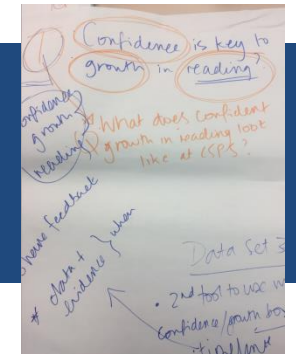 Confidence is key to
growth in reading?
confidence
growth
reading
* What does confident
growth in reading look
like at CSPS?
share feedback
* data +
evidence } when
Data Set 3
• 2nd tool to use
confidence/growth